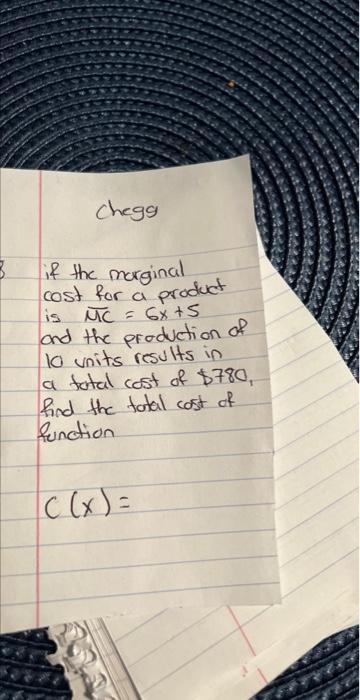 Chegg
if the marginal
cost for a product
is MC = 6x+5
and the production of
10 units results in
a total cost of $780,
find the total cost of
function
C(x) =